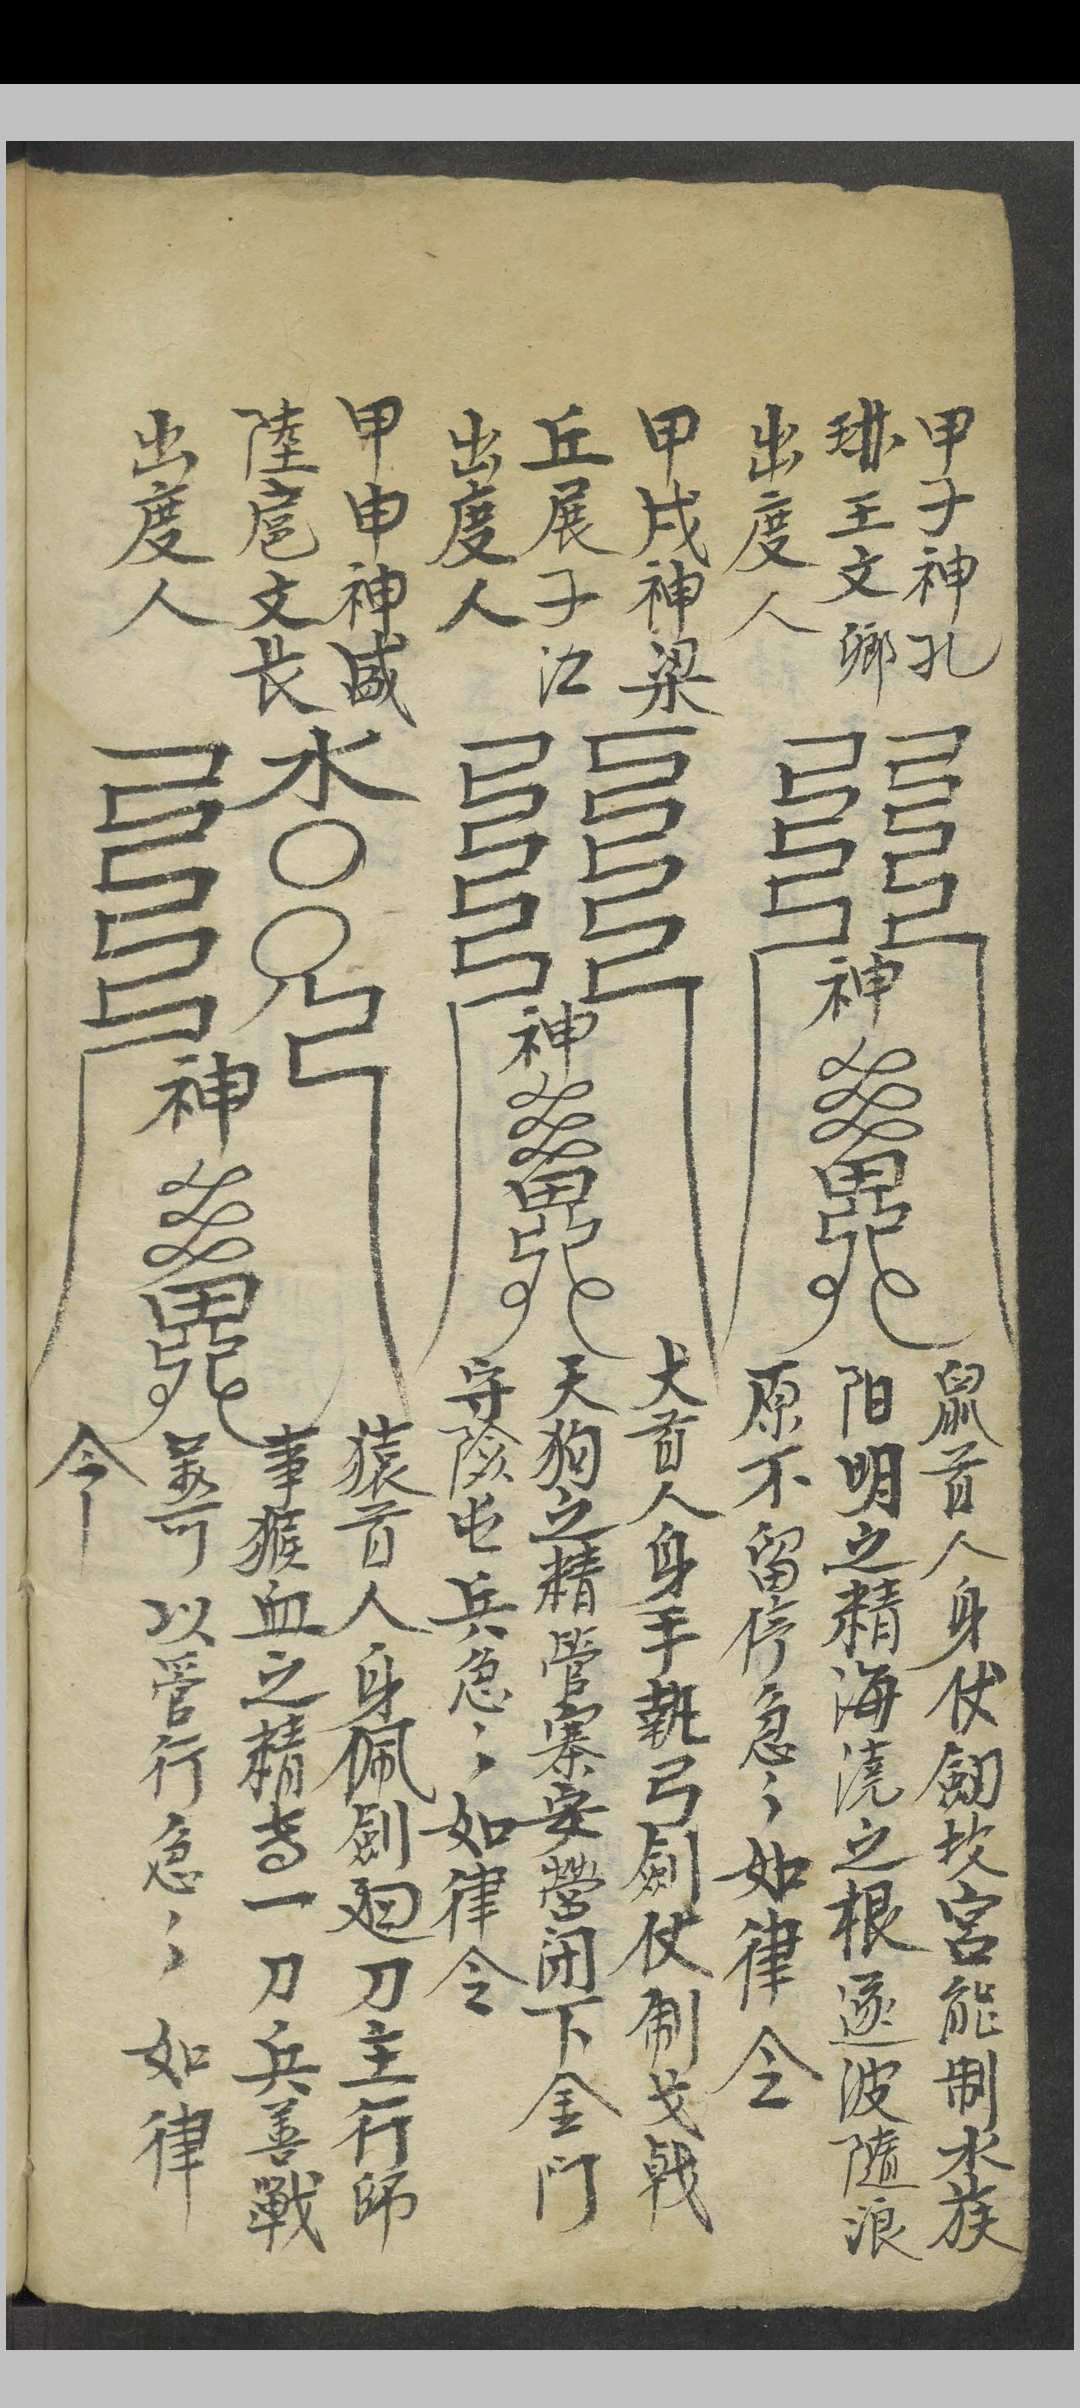 甲子神孔
琳王文卿
出度人
神
鼠首人身仗劔坎宮能制水族
阳明之精海澆之根逐波隨浪
原不留停急〻如律令
甲戌神梁
丘展子江
出度人
神
犬首人身手執弓劍仗制戈戟
天狗之精管寨安營闭下金門
守險屯兵急〻如律令
甲申神咸
陸扈文長
出度人
水
神
猿首人身佩劍廻刀主行師
事猴血之精 一刀兵善戰
可以管行急〻如律
令